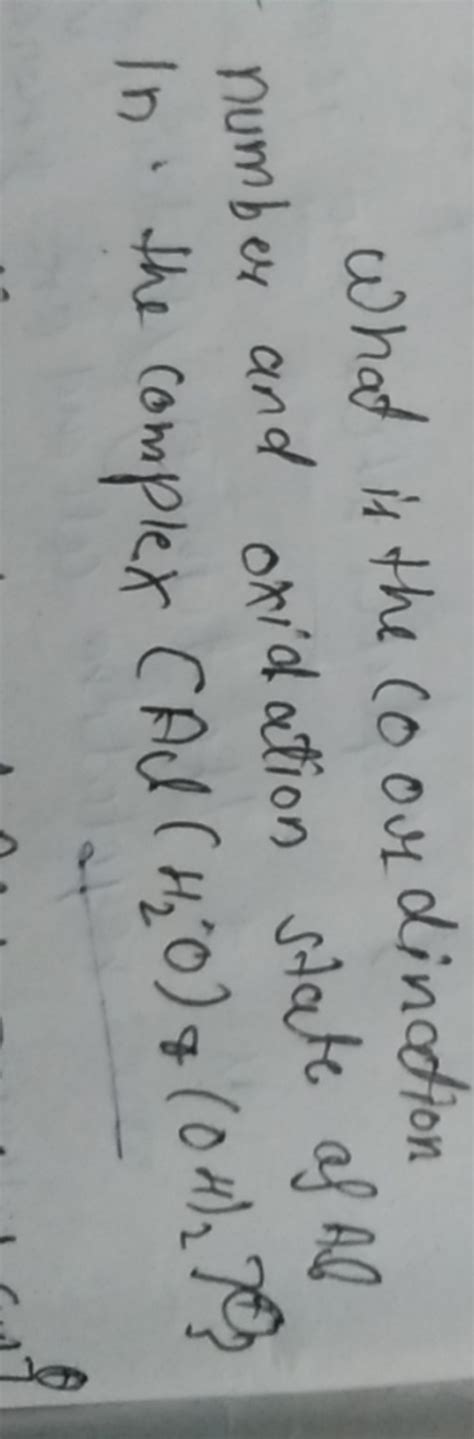 What is the coordination
number and oxidation state of Al
In the complex [Al(H2O)4(OH)2]⊕